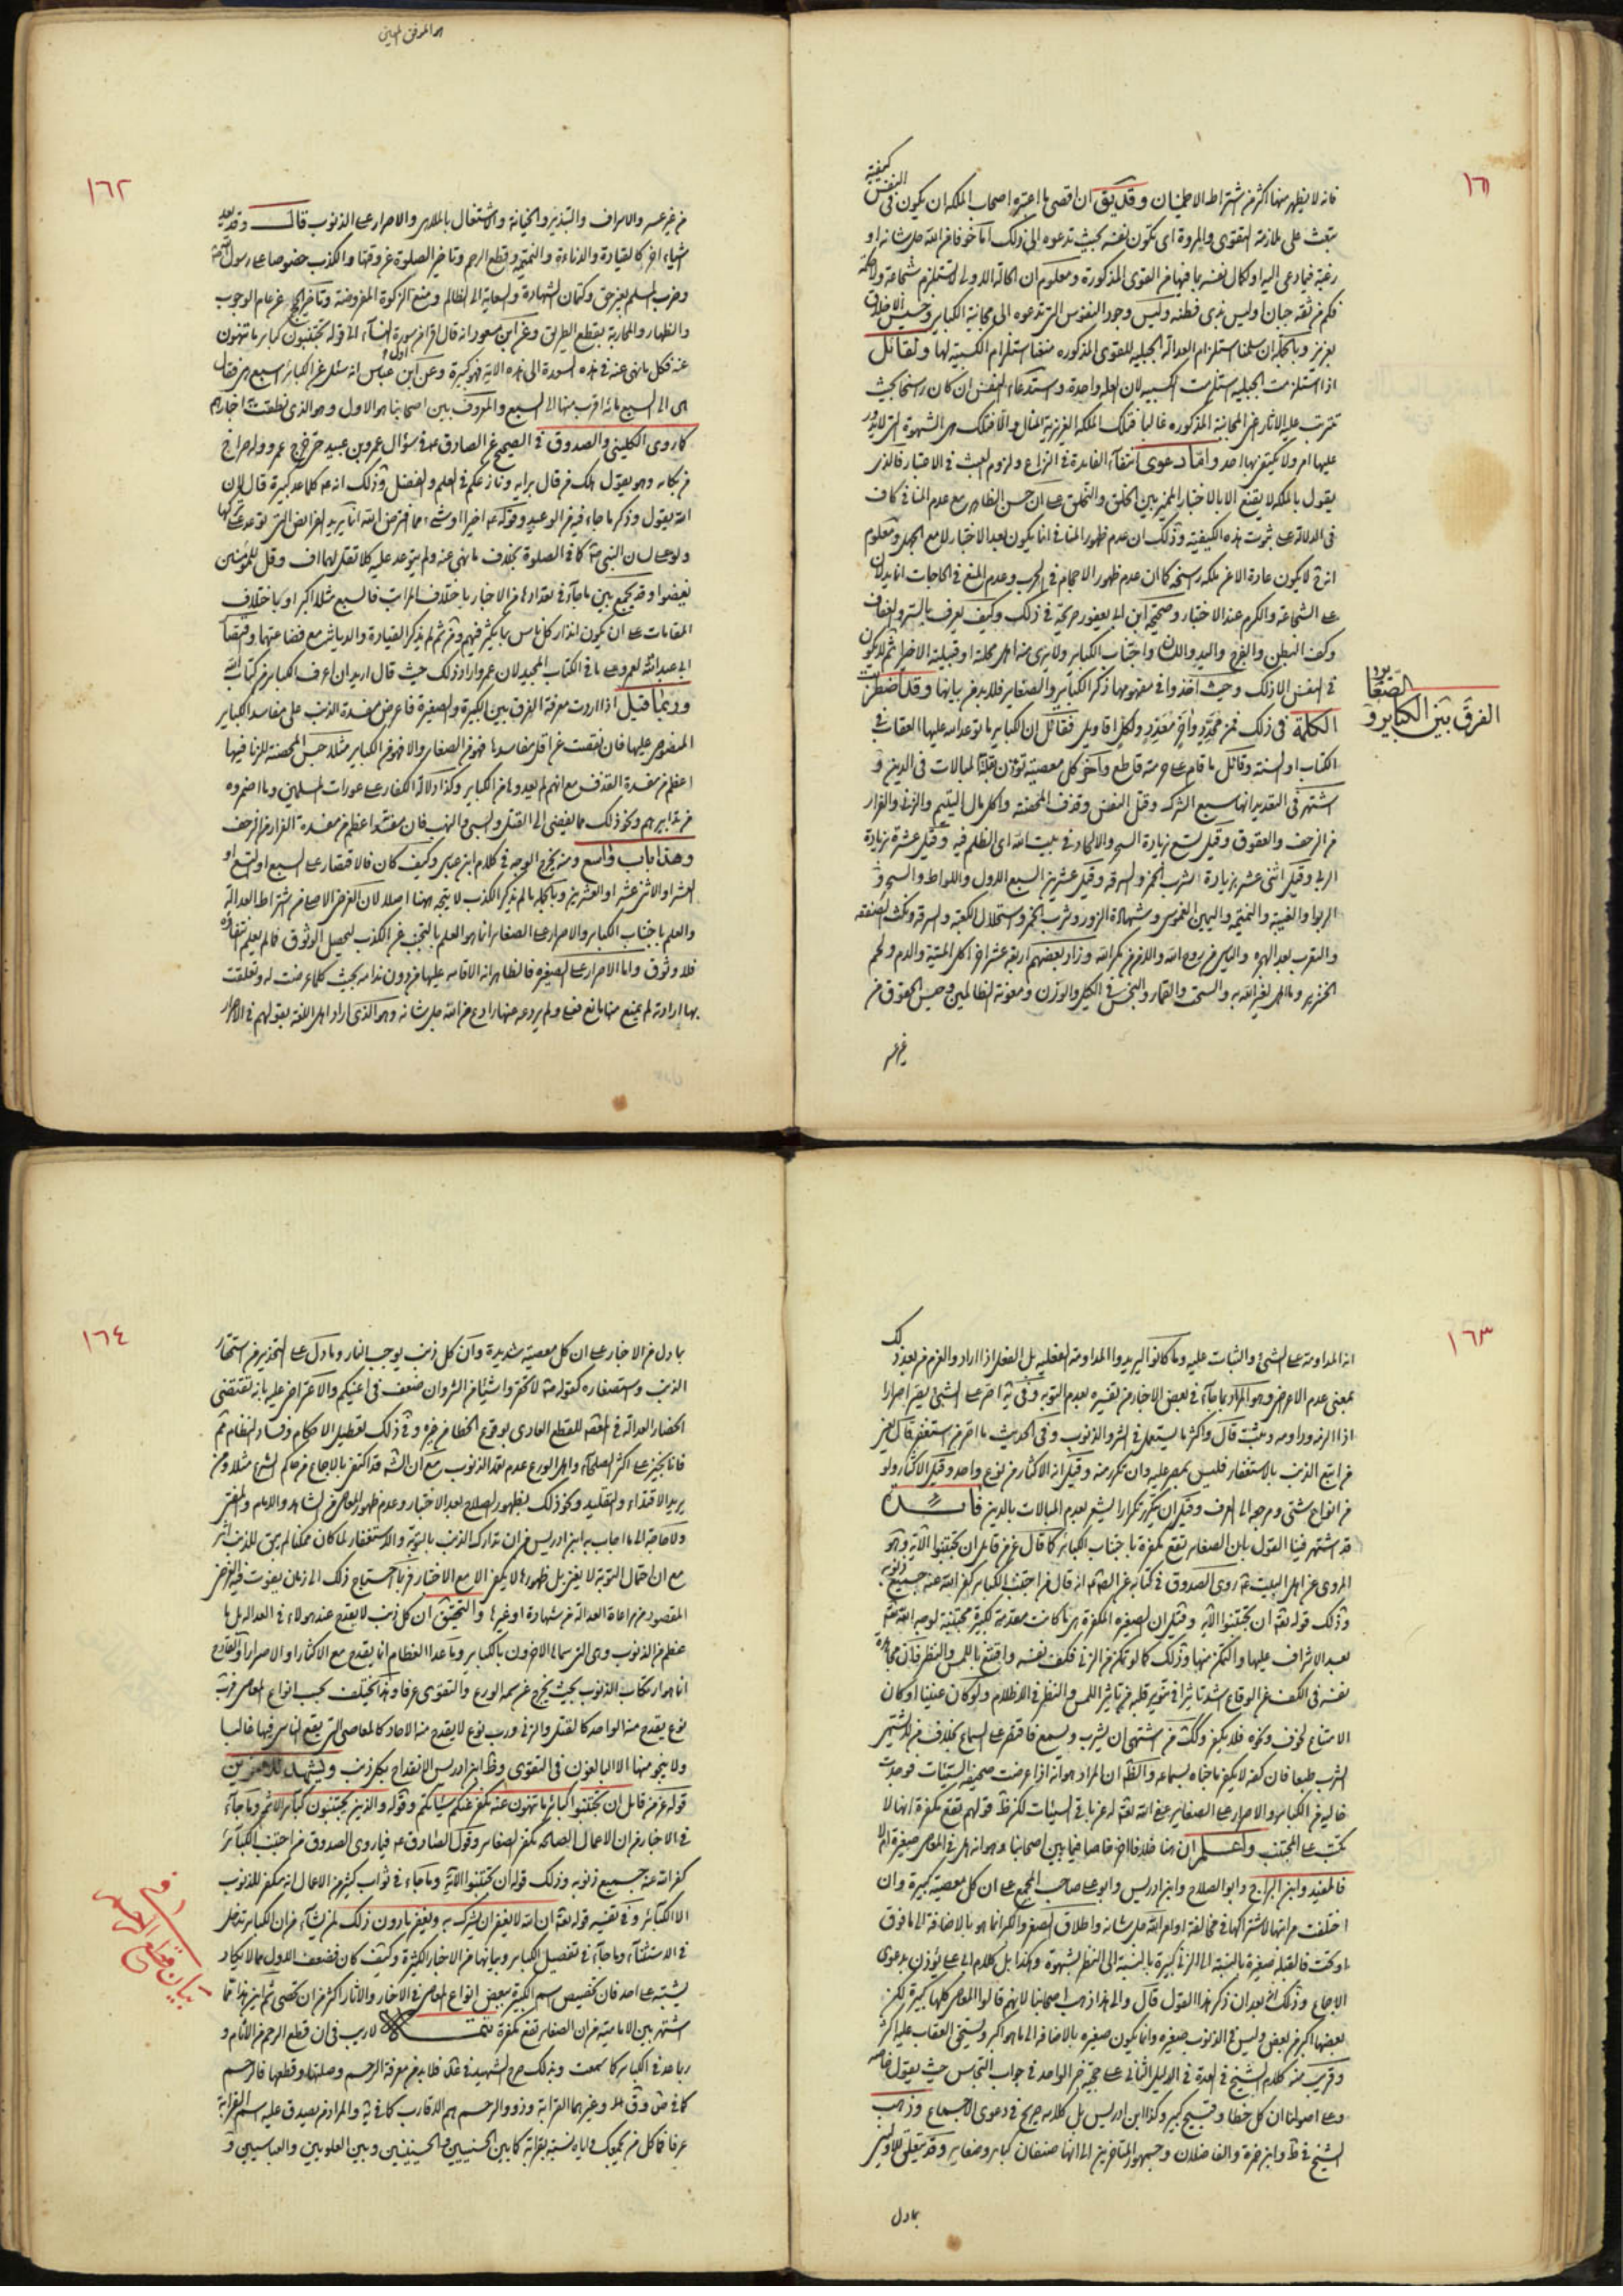 ١٦١
كيفية
فانه لا يظهر منها اكثر من اشتراط الاطمينان وقد يق ان اقصى ما اعتبره اصحاب الملكة ان يكون فى النفس
تبعث على ملازمة التقوى والمروة اى تكون نفسه بحيث تدعوه الى ذلك اما خوفا من الله جل شانه او
رغبة فيما دعى اليه او كمال نفسه بما فيها من القوى المذكورة ومعلوم ان الحالة الاولى لا تستلزم شجاعة ولا حكمة
فكم من ثقة جبان او ليس بذى فطنة وليس وجود النفوس التى تدعوه الى مجانبة الكباير وخسيس الاخلاق
بعزيز وبالجملة ان سلمنا استلزام العدالة الجبلية للقوى المذكورة منعنا استلزام الكسبية لها ولقائل
اذا استلزمت الجبلية استلزمت الكسبية لان العلة واحدة واستدعاء النفس ان كان راسخا بحيث
تترتب عليه الاثار من المجانبة المذكورة غالبا فتلك الملكة العزيزة المنال والا فتلك هى الشهوة التى لا يدور
عليها امر ولا يكتفى بها احد واما دعوى انتفاء الفايدة فى النزاع ولزوم البحث فى الاختبار فالذى
يقول بالملكة لا يقنع الا بالاختبار المميز بين الخلق والتخلق على ان حسن الظاهر مع عدم المنافى كاف
فى الدلالة على ثبوت هذه الكيفية وذلك ان عدم ظهور المنافى انما يكون بعد الاختبار لا مع الجهل ومعلوم
انه لا يكون عادة الا عن ملكة راسخة كما ان عدم ظهور الاحجام فى الحرب وعدم المنع فى الحاجات انما يدلان
على الشجاعة والكرم عند الاختبار وصحيحة ابن ابى يعفور صريحة فى ذلك وكيف يعرف بالستر والعفاف
وكف البطن والفرج واليد واللسان واجتناب الكباير ولا يرى منه اهل محلته او قبيلته الا خيرا ثم لا يكون
فى النفس الا ذلك وحيث اخذوا فى مفهومها ذكر الكباير والصغاير فلا بد من بيانها وقد اضطربت
الفرق بين الكباير و
الصغاير
الكلمة فى ذلك فمن محدد واخر معدد ولكل اقاويل فقائل ان الكباير ما توعد الله عليها العقاب فى
الكتاب او السنة وقائل ما قام على حرمته قاطع واخر كل معصية تؤذن بقلة المبالات فى الدين و
اشتهر فى التقدير انها سبع الشرك وقتل النفس وقذف المحصنة واكل مال اليتيم والزنا والفرار
من الزحف والعقوق وقيل تسع بزيادة السحر والالحاد فى بيت الله اى الظلم فيه وقيل عشرة بزيادة
الربا وقيل اثنى عشر بزيادة الشرب الخمر والسرقة وقيل عشرين السبع الاول واللواط والسحر و
الربوا والغيبة والنميمة واليمين الغموس وشهادة الزور وشرب الخمر واستحلال الكعبة والسرقة ونكث الصفقة
والتعرب بعد الهجرة والياس من روح الله والامن من مكر الله وزاد بعضهم اربعة عشر اخرى اكل الميتة والدم ولحم
الخنزير وما اهل لغير الله به والسحت والقمار والبخس فى الكيل والوزن ومعونة الظالمين وحبس الحقوق من
غير عسر
١٦٢
من غير عسر والاسراف والتبذير والخيانة والاشتغال بالملاهى والاصرار على الذنوب قال وقد يعد
اشياء اخر كالقيادة والدياثة والنميمة وقطع الرحم وتاخير الصلوة عن وقتها والكذب خصوصا على رسول الله
وضرب المسلم بغير حق وكتمان الشهادة والسعاية الى الظالم ومنع الزكوة المفروضة وتاخير الحج عن عام الوجوب
والظهار والمحاربة بقطع الطريق وعن ابن مسعود انه قال اقرا من سورة النساء الى قوله ان تجتنبوا كباير ما تنهون
عنه فكل ما نهى عنه فى هذه السورة الى هذه الاية فهو كبيرة وعن ابن عباس انه سئل عن الكبائر اسبع هى فقال
هى الى السبع مائة اقرب منها الى السبع والمعروف بين اصحابنا هو الاول وهو الذى نطقت به اخبارهم
كما روى الكلينى والصدوق فى الصحيح عن الصادق عه فى سؤال عمرو بن عبيد حتى خرج عمرو وله صراخ
من بكائه وهو يقول هلك من قال برايه ونازعكم فى العلم والفضل وذلك انه عه كلما عد كبيرة قال لان
الله يقول وذكر ما جاء فيه من الوعيد وقوله عه اخيرا او شىء مما فرض الله انما يريد الفرائض التى توعد على تركها
ولو على لسان النبى ص كما فى الصلوة بخلاف ما نهى عنه ولم يتوعد عليه كلا تقل لهما اف وقل للمؤمنين
يغضوا وقد يجمع بين ما جاء فى تعدادها من الاخبار باختلاف المراتب فالسبع مثلا اكبر او باختلاف
المقامات على ان يكون انذار كل ناس بما يكثر فيهم ومن ثم لم يذكر القيادة والدياثة مع فضاعتهما واقتصار
ابى عبد الله لعمرو على ما فى الكتاب المجيد لان عمرو اراد ذلك حيث قال اريد ان اعرف الكباير من كتاب الله
وربما قيل اذا اردت معرفة الفرق بين الكبيرة والصغيرة فاعرض مفسدة الذنب على مفاسد الكباير
المنصوص عليها فان نقصت عن اقل مفاسدها فهو من الصغاير والا فهو من الكباير مثلا حبس المحصنة للزنا فيها
اعظم من مفسدة القذف مع انهم لم يعدوها من الكباير وكذا دلالة الكفار على عورات المسلمين وما اضمروه
من تدابيرهم ونحو ذلك مما يفضى الى القتل والسبى والنهب فان مفسدته اعظم من مفسدة الفرار من الزحف
وهذا باب واسع ومنه يخرج الوجه فى كلام ابن عباس وكيف كان فالاقتصار على السبع او التسع او
العشر او الاثنى عشر او العشرين وبالجملة ما لم يذكر الكذب لا يتجه هنا اصلا لان الغرض الاصلى من اشتراط العدالة
والعلم باجتناب الكباير والاصرار على الصغاير انما هو العلم بالتجنب عن الكذب ليحصل الوثوق فما لم يعلم انتفاؤه
فلا وثوق واما الاصرار على الصغيرة فالظاهر انه الاقامة عليها من دون ندامة بحيث كلما عرضت له وتعلقت
بها ارادته لم يمنع منها مانع ولم يردعه عنها رادع من الله جل شانه وهو الذى اراد اهل اللغة بقولهم فى الاصرار
١٦٣
انه المداومة على الشىء والثبات عليه وما كانوا ليريدوا المداومة الفعلية بل الفعل اذا اراد والعزم من بعد ذلك
بمعنى عدم الاعراض وهو المراد بما جاء فى بعض الاخبار من تفسيره بعدم التوبة وفى يه اصر على الشىء يصر اصرارا
اذا الزمه وداومه وثبت قال واكثر ما يستعمل فى الشر والذنوب وفى الحديث ما اصر من استغفر قال يعنى
من اتبع الذنب بالاستغفار فليس بمصر عليه وان تكرر منه وقيل انه الاكثار من نوع واحد وقيل الاكثار ولو
من انواع شتى ومرجعه الى العرف وقيل ان يتكرر تكرارا يشعر بعدم المبالات بالدين فائدة
قد اشتهر فينا القول بان الصغاير تقع مكفرة باجتناب الكبائر كما قال عز من قائل ان تجتنبوا الآية وهو
المروى عن اهل البيت عه روى الصدوق فى كتابه عن الصادق انه قال من اجتنب الكباير كفر الله عنه جميع ذنوبه
وذلك قوله تعه ان تجتنبوا الآية وقيل ان الصغيرة المكفرة هى ما كانت مقدمة لكبيرة مجتنبة لوجه الله تعه
بعد الاشراف عليها والتمكن منها وذلك كما لو تمكن من الزنى فكف نفسه واقتنع باللمس والنظر فان مجاهدة
نفسه فى الكف عن الوقاع اشد تاثيرا فى تنوير قلبه من تاثير اللمس والنظر فى الاظلام ولو كان عنينا او كان
الامتناع لخوف ونحوه فلا يكفر وكك من اشتهى ان يشرب ويسمع فاقتصر على السماع بخلاف من لا يشتهى
الشرب طبعا فان كفه لا يكفر ما جاء به بسماعه والظ ان المراد هو انه اذا عرضت صحيفة السيئات فوجدت
خالية من الكبائر والاصرار على الصغاير عفى الله تعه له عن باقى السيئات لكن ظ قولهم تقع مكفرة انها لا
تكتب على المجتنب واعلم ان هنا خلافا اخر خاصا فيما بين اصحابنا وهو انه هل فى المعاصى صغيرة ام لا
فالمفيد وابن البراج وابو الصلاح وابن ادريس وابو على صاحب المجمع على ان كل معصية كبيرة وان
اختلفت مراتبها لاشتراكها فى مخالفة اوامر الله جل شانه واطلاق الصغر والكبر انما هو بالاضافة الى ما فوق
او تحت فالقبلة صغيرة بالنسبة الى الزنى كبيرة بالنسبة الى النظر لشهوة وهكذا بل كلام ابى على يؤذن بدعوى
الاجماع وذلك انه بعد ان ذكر هذا القول قال والى هذا ذهب اصحابنا لانهم قالوا المعاصى كلها كبيرة لكن
بعضها اكبر من بعض وليس فى الذنوب صغيرة وانما يكون صغيره بالاضافة الى ما هو اكبر ويستحق العقاب عليه اكثر
وقريب منه كلام الشيخ فى العدة فى الدليل الثانى على حجية خبر الواحد فى جواب التجاسر حيث يقول خاصة
وعلى اصولنا ان كل خطا وقبيح كبير وكذا ابن ادريس بل كلامه صريح فى دعوى الاجماع وذهب
الشيخ فى ط وابن حمزة والفاضلان وجمهور المتاخرين الى انها صنفان كباير وصغاير وقد يتعلق للاولين
بما دل
١٦٤
بما دل من الاخبار على ان كل معصية شديدة وان كل ذنب يوجب النار وما دل على التحذير من استحقار
الذنب واستصغاره كقوله ص لا تحقروا شيئا من الشر وان صغر فى اعينكم والاعتراض عليه بانه تقتضى
انحصار العدالة فى العصمة للقطع العادى بوقوع الخطا من غيره وفى ذلك تعطيل الاحكام وفساد النظام ثم
فانا نخبر على اكثر الصلحاء واهل الورع عدم تفقد الذنوب مع ان الشارع قد اكتفى بالاجماع من حاكم الشرع مثلا ومن
يريد الاقتداء والتقليد ونحو ذلك بظهور الصلاح بعد الاختبار وعدم ظهور المعاصى من الشاهد والامام والمفتى
ولا حاجة الى ما اجاب به ابن ادريس من ان تدارك الذنب بالتوبة والاستغفار لما كان ممكنا لم يبق للذنب اثر
مع ان احتمال التوبة لا يغنى بل ظهورها لا يمكن الا مع الاختبار فربما احتاج ذلك الى زمان يفوت فيه الغرض
المقصود من مراعاة العدالة من شهادة او غيرها والتحقيق ان كل ذنب لا يقدح عند هؤلاء فى العدالة بل ما
عظم من الذنوب وهى التى سماها الاخرون بالكباير وما عدا العظام انما يقدح مع الاكثار او الاصرار والقادح
انما هو ارتكاب الذنوب بحيث يخرج عن سمة الورع والتقوى عرفا وهذا يختلف بحسب انواع المعاصى فرب
نوع يقدح منه الواحد كالقتل والزنى ورب نوع لا يقدح منه الاحاد كالمعاصى التى يقع الناس فيها غالبا
ولا ينجو منها الا البالغون فى التقوى وظ ابن ادريس الانقداح بكل ذنب ويشهد للاخرين
قوله عز من قائل ان تجتنبوا كبائر ما تنهون عنه نكفر عنكم سيئاتكم وقوله والذين يجتنبون كبائر الاثم وما جاء
فى الاخبار من ان الاعمال الصالحة تكفر الصغاير وقول الصادق عه فيما روى الصدوق من اجتنب الكبائر
كفر الله عنه جميع ذنوبه وذلك قوله ان تجتنبوا الآية وما جاء فى ثواب كثير من الاعمال انه مكفر للذنوب
الا الكبائر وفى تفسير قوله تعه ان الله لا يغفر ان يشرك به ويغفر ما دون ذلك لمن يشاء من ان الكباير تدخل
فى الاستثناء وما جاء فى تفصيل الكباير وبيانها من الاخبار الكثيرة وكيف كان فضعف الاول مما لا يكاد
يشتبه على احد فان تخصيص اسم الكبيرة ببعض انواع المعاصى فى الاخبار والاثار اكثر من ان تحصى ثم اين هذا مما
اشتهر بين الامامية من ان الصغاير تقع مكفرة تتمة لا ريب فى ان قطع الرحم من الاثام و
بيان قطع الرحم
ربما عد فى الكباير كما سمعت وبذلك صرح الشهيد فى عد فلا بد من معرفة الرحم وصلتها وقطعها فالرحم
كما فى ص وق وغيرهما القرابة وذوو الرحم هم الاقارب كما فى يه والمراد من يصدق عليه اسم القرابة
عرفا فكل من يجمعك واياه نسبة بقرابة كما بين الحسنيين والحسينيين وبين العلويين والعباسيين و